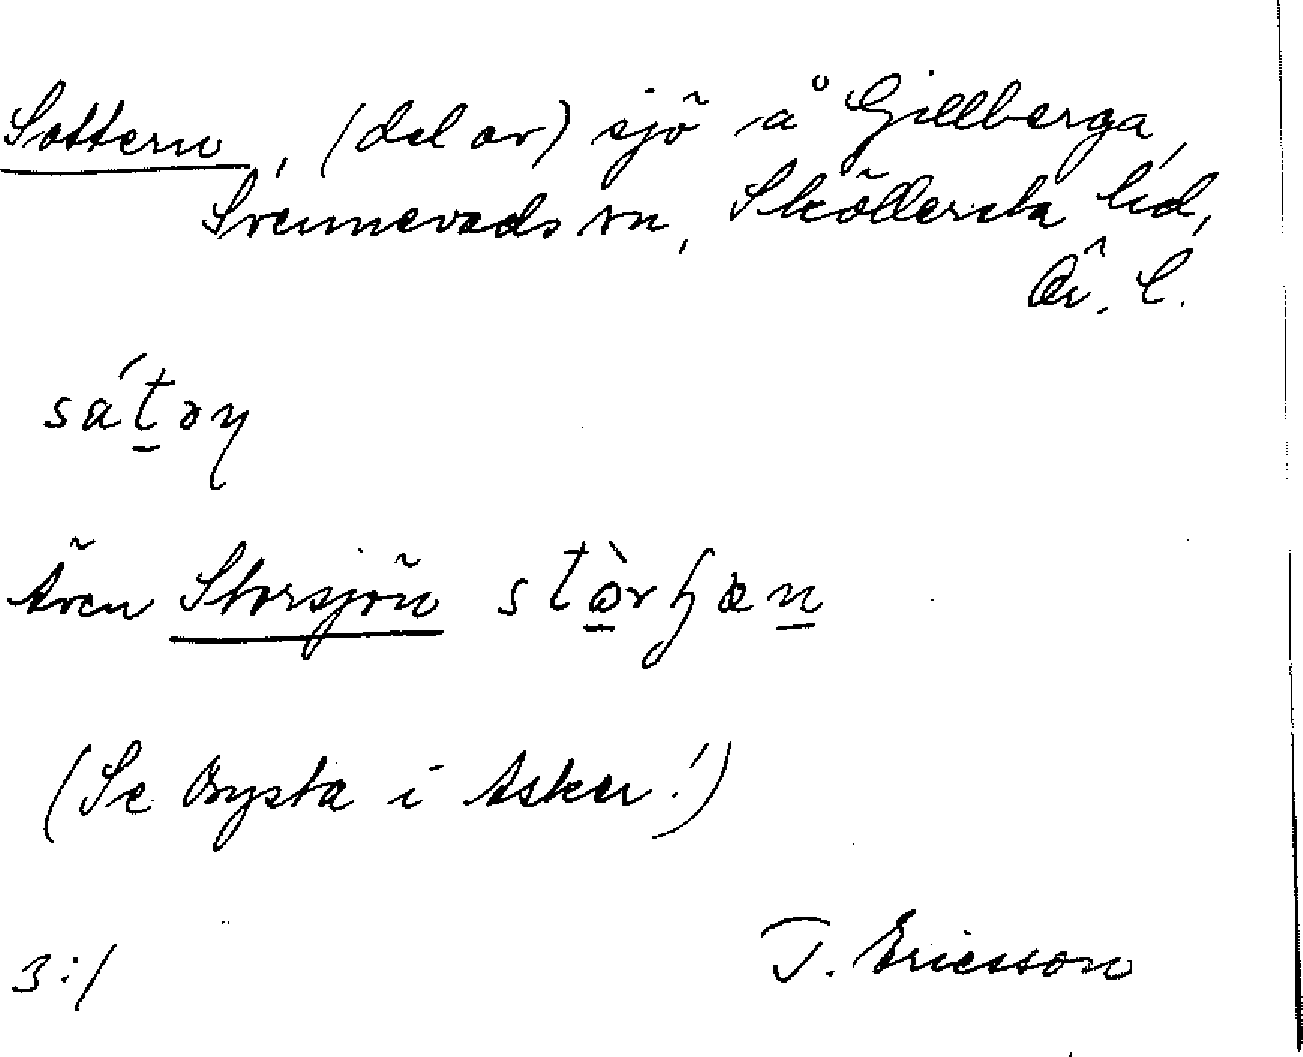 Sottern, (del av) sjö å Gillberga,
Svennevads sn, Sköllersta hd,
Ör. l.
sát̠əɳ
Även Storsjön stò̠rɧæn̠
(Se Bysta i Asker!)
3:/ T. Ericsson